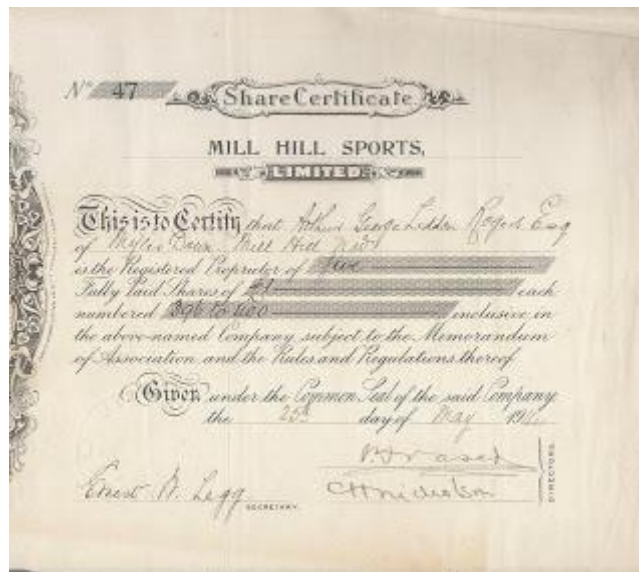 Nº 47
Share Certificate
MILL HILL SPORTS,
LIMITED.
This is to Certify that Arthur George Liddon Rogers Esq
of Myles Down Mill Hill
is the Registered Proprietor of five
Fully Paid Shares of £1 each
numbered 396 to 400 inclusive in
the above-named Company, subject to the Memorandum
of Association and the Rules and Regulations thereof.
Given under the Common Seal of the said Company
the 25th day of May 19
Ernest W. Legg
SECRETARY.
C H Nicholson
DIRECTORS.